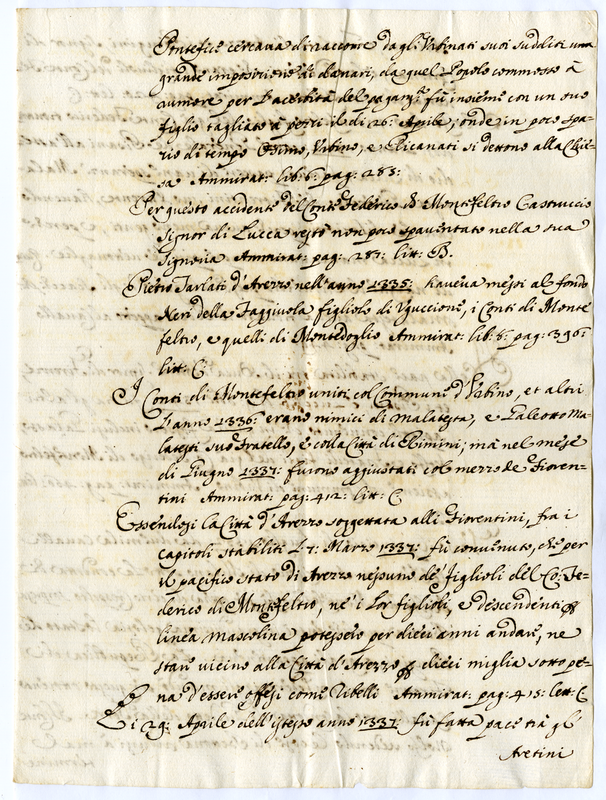 Pontefice cercaua di raccorre da gl' Vrbinati suoi sudditi una
grande impositione di danari, da quel Popolo commosso à
rumore per l'acerbità del pagam.to fù insieme con un suo
figlio tagliato à pezzi il dì 26: Aprile; onde in poco spa-
tio di tempo Osimo, Vrbino, e Ricanati si dettono alla Chie-
sa Ammirat: lib: 6: pag: 283:
Per questo accidente del Conte Federico di Montefeltro Castruccio
Signor di Lucca restò non poco spauentato nella sua
Signoria Ammirat: pag: 283: litt: B.
Pietro Tarlati d'Arezzo nell'anno 1335: haueua messi al fondo
Neri della Faggiuola figliolo di Vguccione, i Conti di Monte
feltro, e quelli di Montedoglio Ammirat: lib: 8: pag: 396:
litt: C
I Conti di Montefeltro uniti col Commune d'Vrbino, et altri
l'anno 1336: erano nimici di Malatesta, e Galeotto Ma-
latesti suo fratello, e colla Città di Rimini; mà nel mese
di Giugno 1337: furono aggiustati col mezzo de' Fioren-
tini Ammirat: pag: 412: litt: C
Essendosi la Città d'Arezzo soggettata alli Fiorentini, fra i
capitoli stabiliti li 7: Marzo 1337: fù conuenuto, che per
il pacifico stato di Arezzo nessuno de' figlioli del Co: Fe-
derico di Montefeltro, nè i lor figlioli, e descendenti p
linea mascolina potessero per dieci anni andare, ne
stare vicino alla Città d'Arezzo p dieci miglia sotto pe-
na d'essere offesi come ribelli Ammirat: pag: 413: lett: C
Li 29: Aprile dell'istesso anno 1337: fù fatta pace trà gl'
Aretini